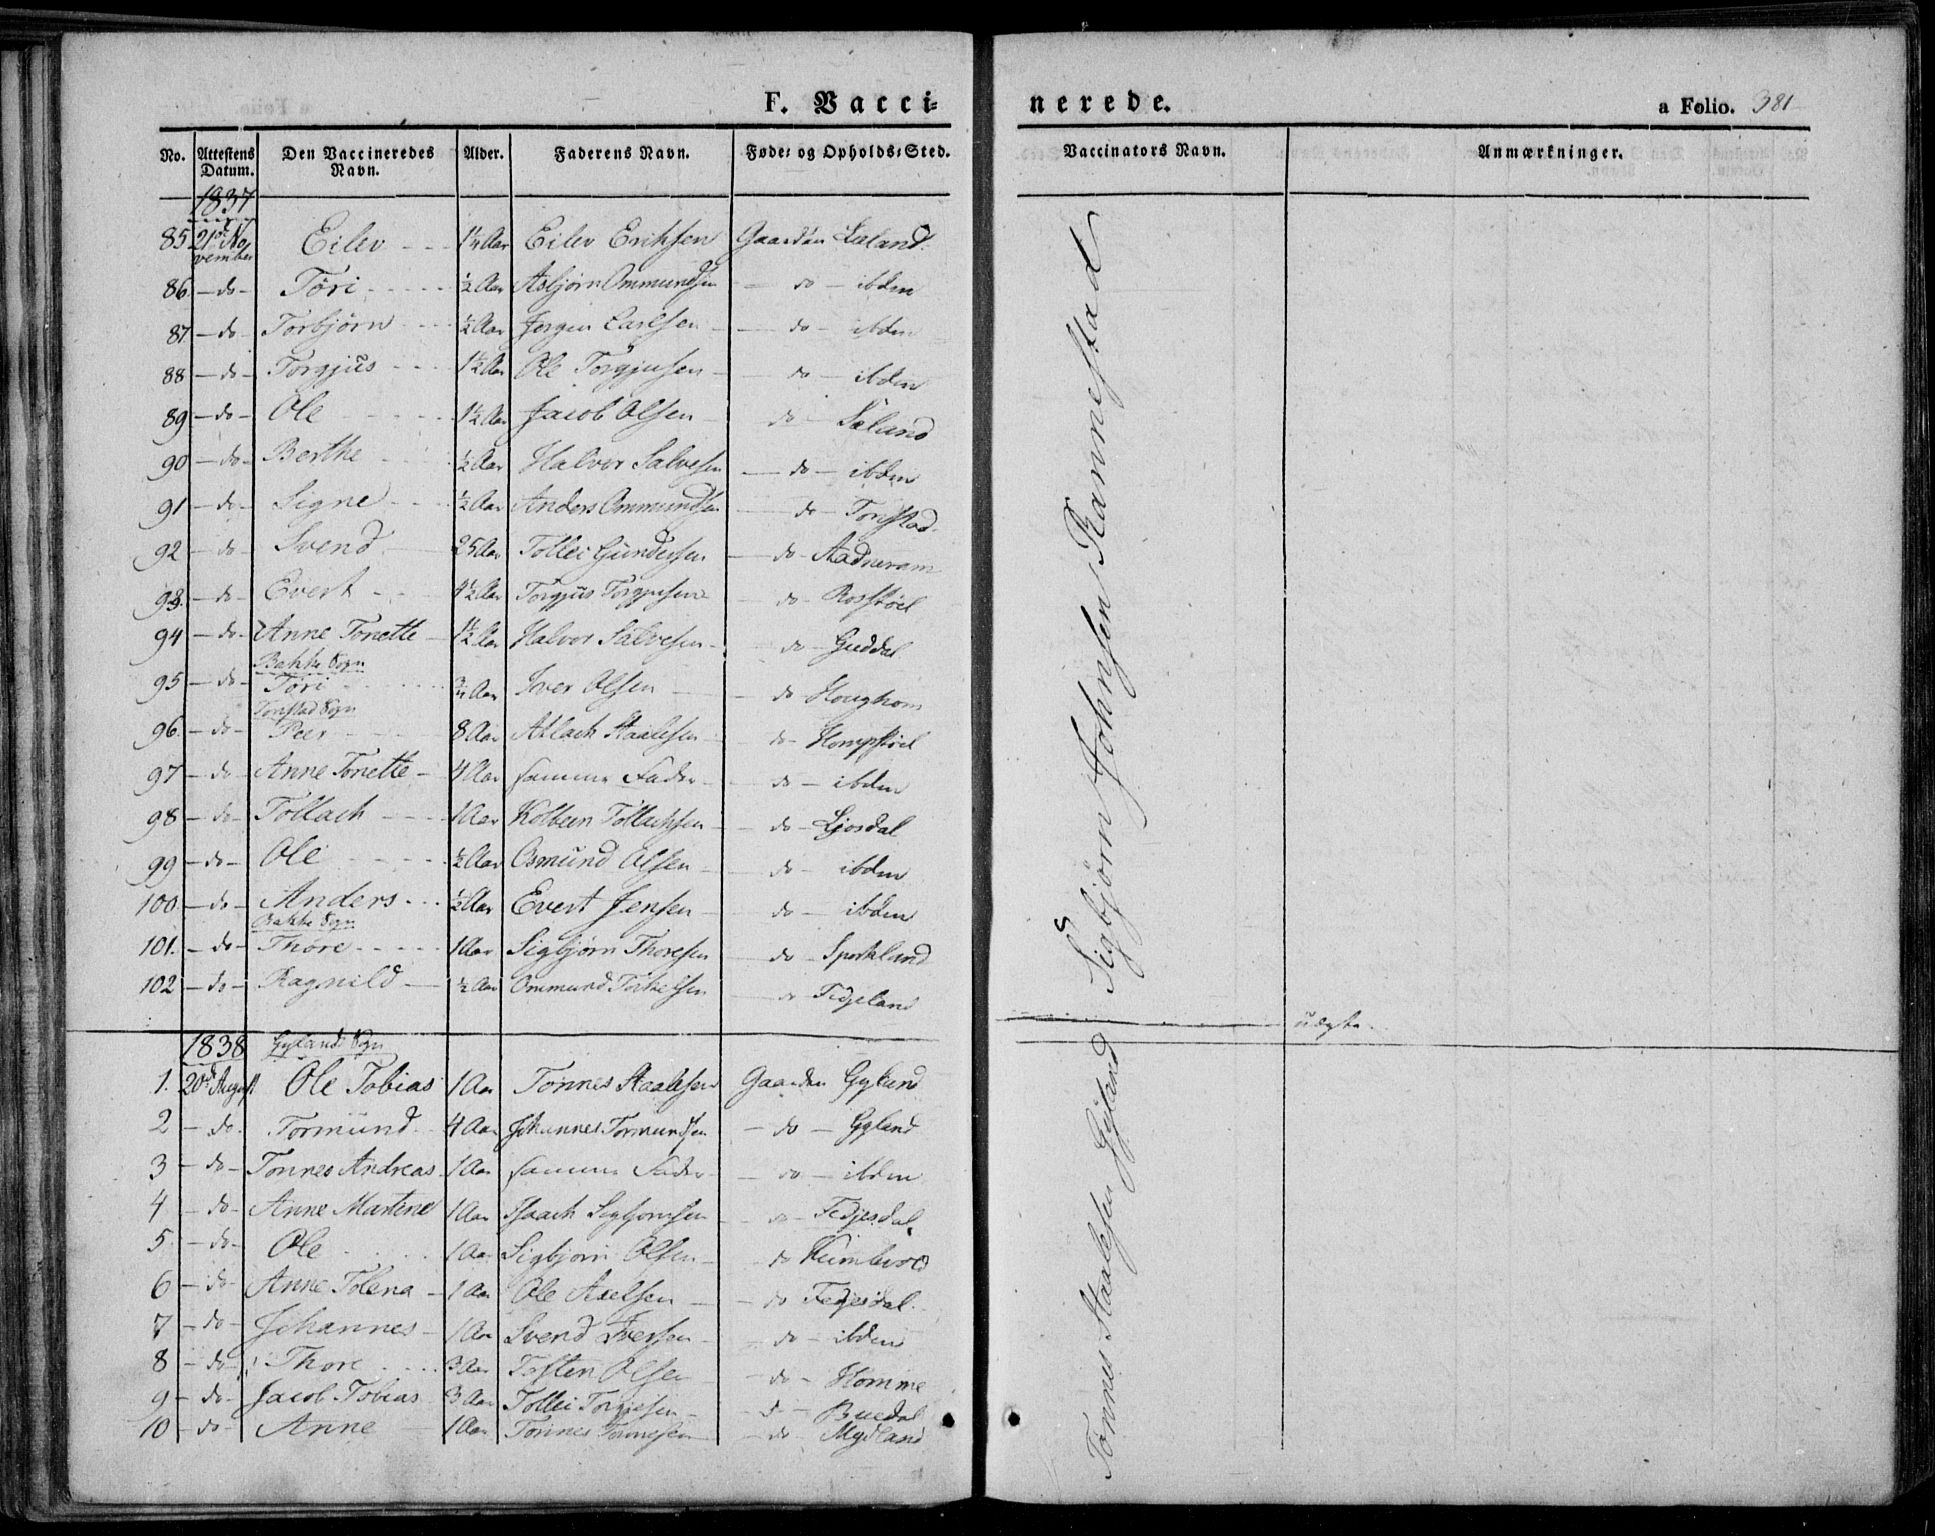 F. Vacci-
nerede.
a Folio. 381
No. Attestens Datum. Den Vaccineredes Navn. Alder. Faderens Navn. Føde- og Opholds-Sted. Vaccinators Navn. Anmærkninger.
1837
85 21de November Eilev 1½ Aar Eilev Eriksen Gaarden Læland
86 do Tori ½ Aar Asbjørn Ommundsen do ibden
87 do Torbjørn ½ Aar Jørgen Carlsen do ibden
88 do Torgjus 1½ Aar Ole Torgjusen do ibden
89 do Ole 1½ Aar Jacob Olsen do
90 do Berthe ½ Aar Halvor Salvesen do ibden
91 do Signe ½ Aar Anders Ommundsen do Tonstad
92 do Svend 25 Aar Tollei Gundersen do Aadneram
93 do Evert 1½ Aar Torgjus Torgjusen do Rosstøel
94 do Anne Tonette 1½ Aar Halvor Salvesen do Guddal
Bakke Sogn
95 do Tori ¾ Aar Iver Olsen do Houghom
Tonstad Sogn
96 do Peer 8 Aar Atlach Staalesen do Kompstøel
97 do Anne Tonette 4 Aar samme Fader do ibden
98 do Tollach 1 Aar Kolbeen Tollachsen do Ljosdal
99 do Ole ½ Aar Osmund Olsen do ibden
100 do Anders ½ Aar Evert Jensen do ibden
Bakke Sogn
101. do Thore 1 Aar Sigbjørn Thoresen do Sporkland
102 do Ragnild ½ Aar Ommund Torkelsen do Fidjeland
Sigbjørn Johnsen Rannestad
uægte
1838 Gylands Sogn
1. 20de August Ole Tobias 1 Aar Tønnes Staalesen Gaarden Gyland
2 do Tormund 4 Aar Johannes Tormundsen do Gyland
3 do Tonnes Andreas 1 Aar samme Fader do ibden
4 do Anne Martine 1 Aar Isaach Sigbjørnsen do Fedjesdal
5 do Ole 1 Aar Sigbjørn Olsen do Kumlevol
6 do Anne Tolena 1 Aar Ole Axelsen do Fedjesdal
7 do Johannes 1 Aar Svend Iversen do ibden
8 do Thore 3 Aar Tosten Olsen do Homme
9 do Jacob Tobias 3 Aar Tollei Torgiesen do Buedal
10 do Anne 1 Aar Tønnes Tønnesen do Mydland
Tønnes Staalesen Gyland